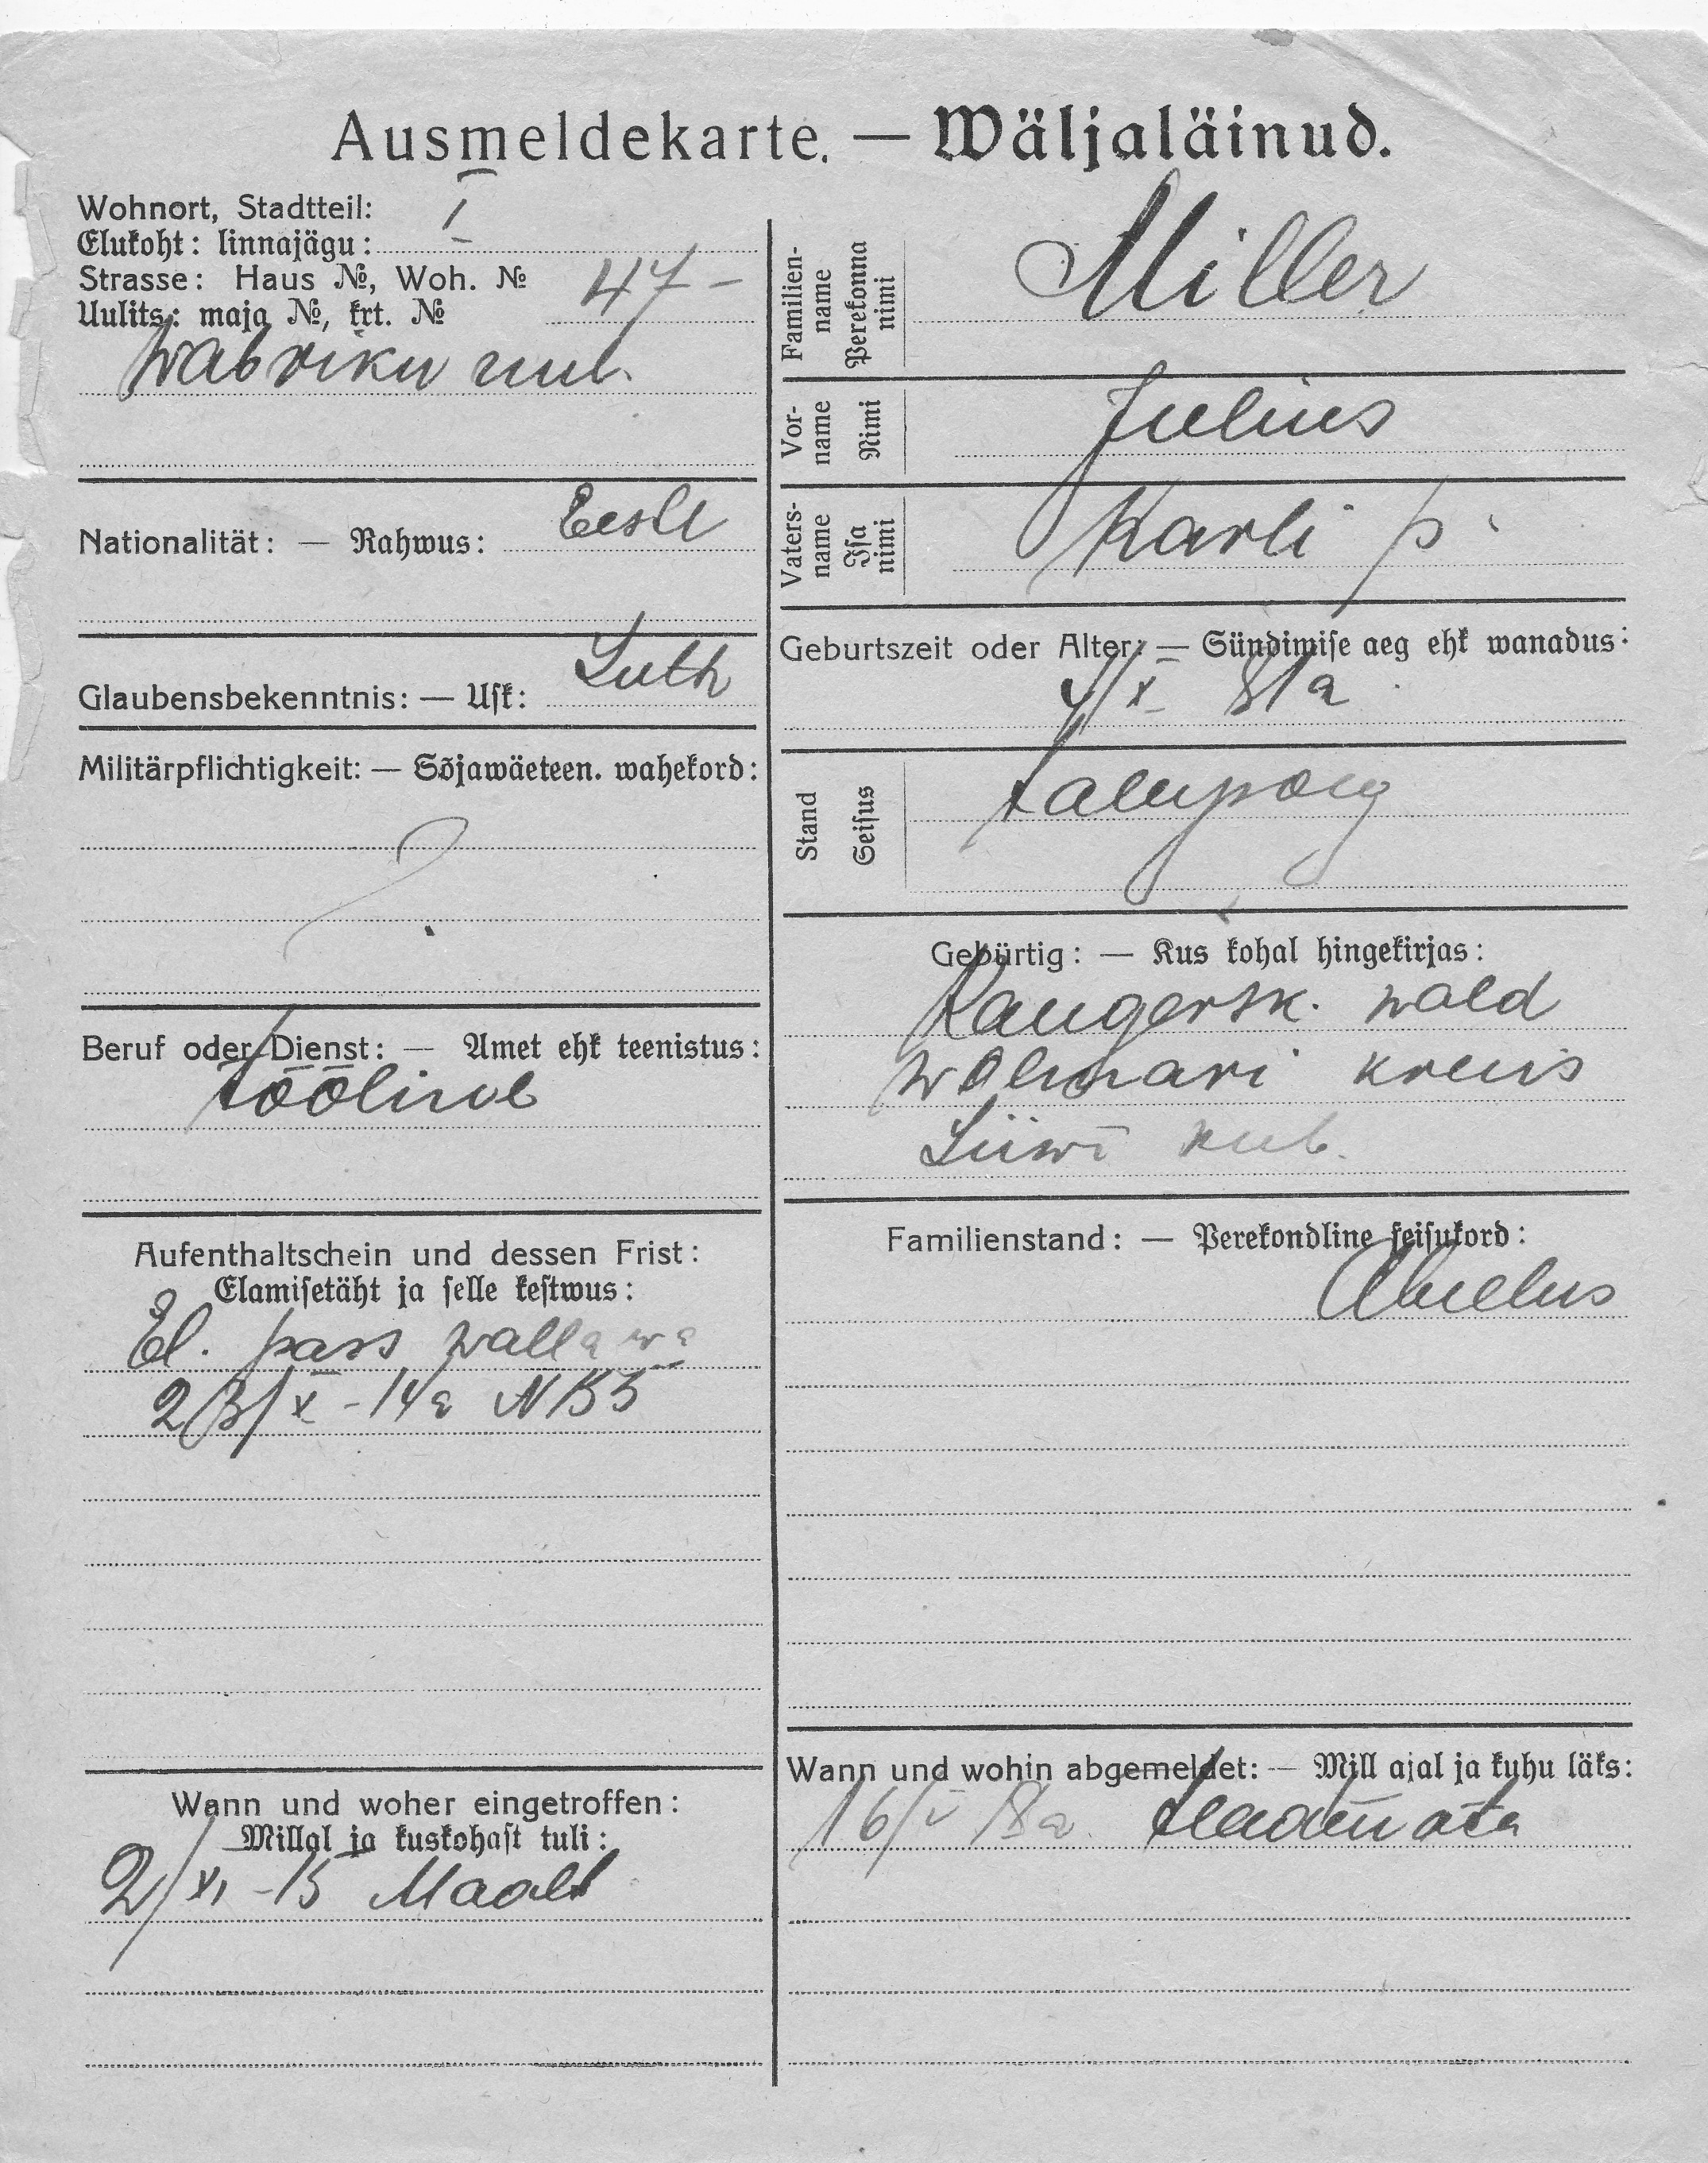 Ausmeldekarte. — Wäljaläinud.
Wohnort, Stadtteil: I
Elukoht: linnajägu:
Strasse: Haus №, Woh. № 47 –
Uulits: maja №, krt. №
Wabriku uul.
Nationalität: — Rahwus: Eesti
Glaubensbekenntnis: — Usk: Luth
Militärpflichtigkeit: — Sõjawäeteen. wahekord:
?
Beruf oder Dienst: — Amet ehk teenistus:
tööline
Aufenthaltschein und dessen Frist:
Elamisetäht ja selle kestwus:
El. pass wallawa
23/X -14a N 155
Wann und woher eingetroffen:
Millal ja kuskohast tuli:
2/XI -15 Maalt
Familien-name Perekonna nimi Miller
Vor-name Nimi Julius
Vaters-name Isa nimi Karli p.
Geburtszeit oder Alter: — Sündimise aeg ehk wanadus:
4/X 81a
Stand Seisus talupoig
Gebürtig: — Kus kohal hingekirjas:
Kaugersk. wald
Wolmari kreis
Liiwi kub.
Familienstand: — Perekondline seisukord:
Abielus
Wann und wohin abgemeldet: — Mill ajal ja kuhu läks:
16/V 18a teadmata